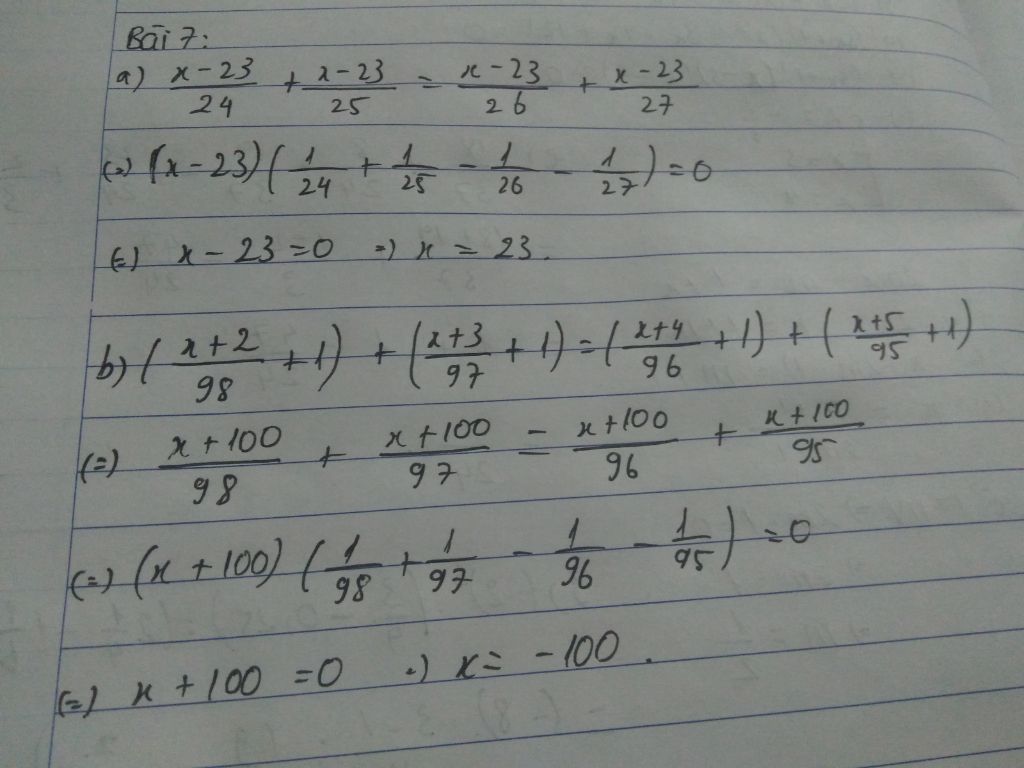 Bài 7:
a) \frac{x-23}{24} + \frac{x-23}{25} = \frac{x-23}{26} + \frac{x-23}{27}
(=) (x-23)(\frac{1}{24} + \frac{1}{25} - \frac{1}{26} - \frac{1}{27}) = 0
(=) x - 23 = 0 =) x = 23.
b) (\frac{x+2}{98} + 1) + (\frac{x+3}{97} + 1) = (\frac{x+4}{96} + 1) + (\frac{x+5}{95} + 1)
(=) \frac{x+100}{98} + \frac{x+100}{97} = \frac{x+100}{96} + \frac{x+100}{95}
(=) (x+100)(\frac{1}{98} + \frac{1}{97} - \frac{1}{96} - \frac{1}{95}) = 0
(=) x + 100 = 0 =) x = -100.